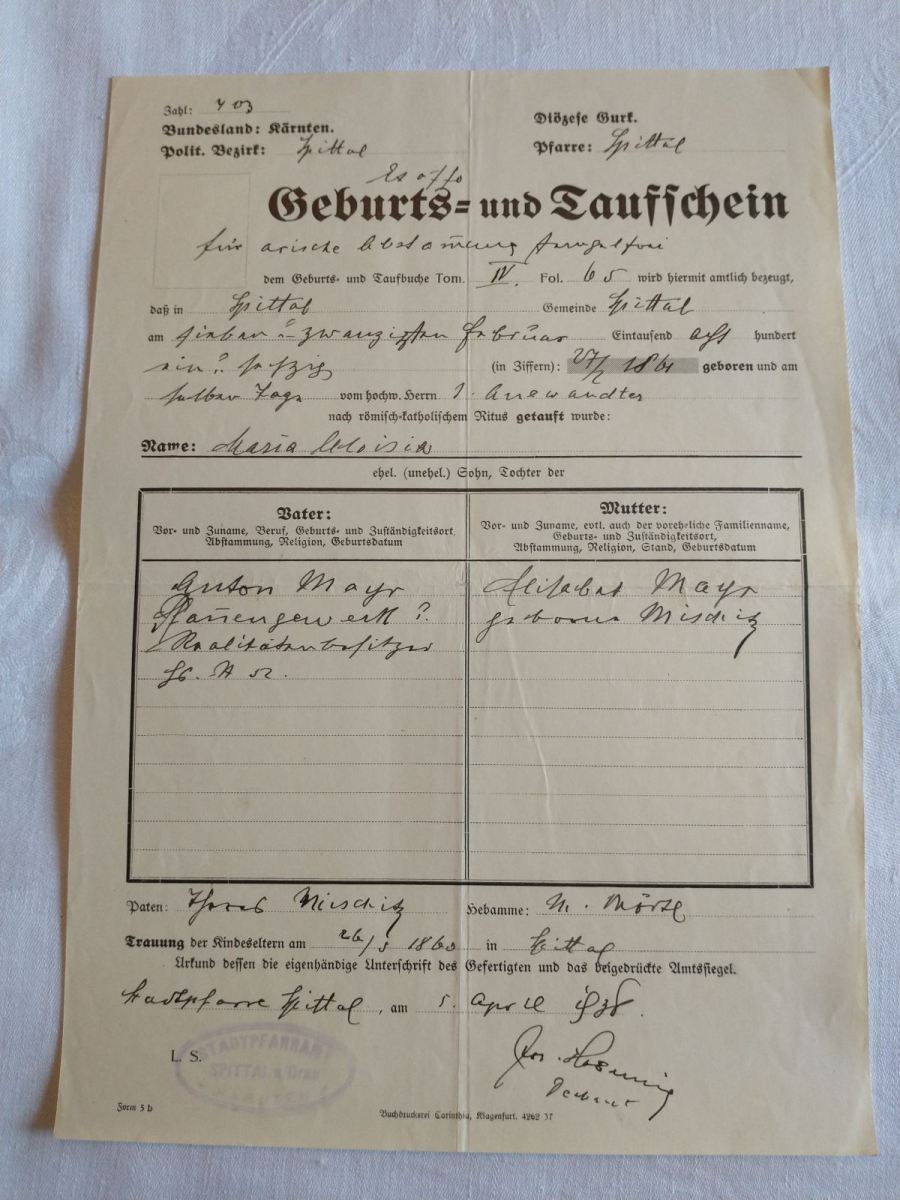 Zahl: 703
Bundesland: Kärnten.
Diözese Gurk.
Polit. Bezirk: Spittal
Pfarre: Spittal
Ex offo
Geburts- und Taufschein
für arische Abstammung stempelfrei
dem Geburts- und Taufbuche Tom. IV. Fol. 65 wird hiermit amtlich bezeugt,
daß in Spittal Gemeinde Spittal
am sieben u. zwanzigsten Februar Eintausend acht hundert
ein u. sechzig (in Ziffern): 27/2 1861 geboren und am
selben Tage vom hochw. Herrn J. Anewandter
nach römisch-katholischem Ritus getauft wurde:
Name: Maria Aloisia
ehel. (unehel.) Sohn, Tochter der
Vater:
Vor- und Zuname, Beruf, Geburts- und Zuständigkeitsort,
Abstammung, Religion, Geburtsdatum
Mutter:
Vor- und Zuname, evtl. auch der voreheliche Familienname,
Geburts- und Zuständigkeitsort,
Abstammung, Religion, Stand, Geburtsdatum
Anton Mayr
Realitätenbesitzer
Elisabet Mayr
geborne Mischitz
Paten: Mischitz Hebamme: M. Mörtl
Trauung der Kindeseltern am 26/5 1860 in Spittal
Urkund dessen die eigenhändige Unterschrift des Gefertigten und das beigedrückte Amtssiegel.
Stadtpfarre Spittal, am 5. April 1938.
L. S.
STADTPFARRAMT
SPITTAL a/Drau
Form 5 b
Buchdruckerei Carinthia, Klagenfurt. 4262 37